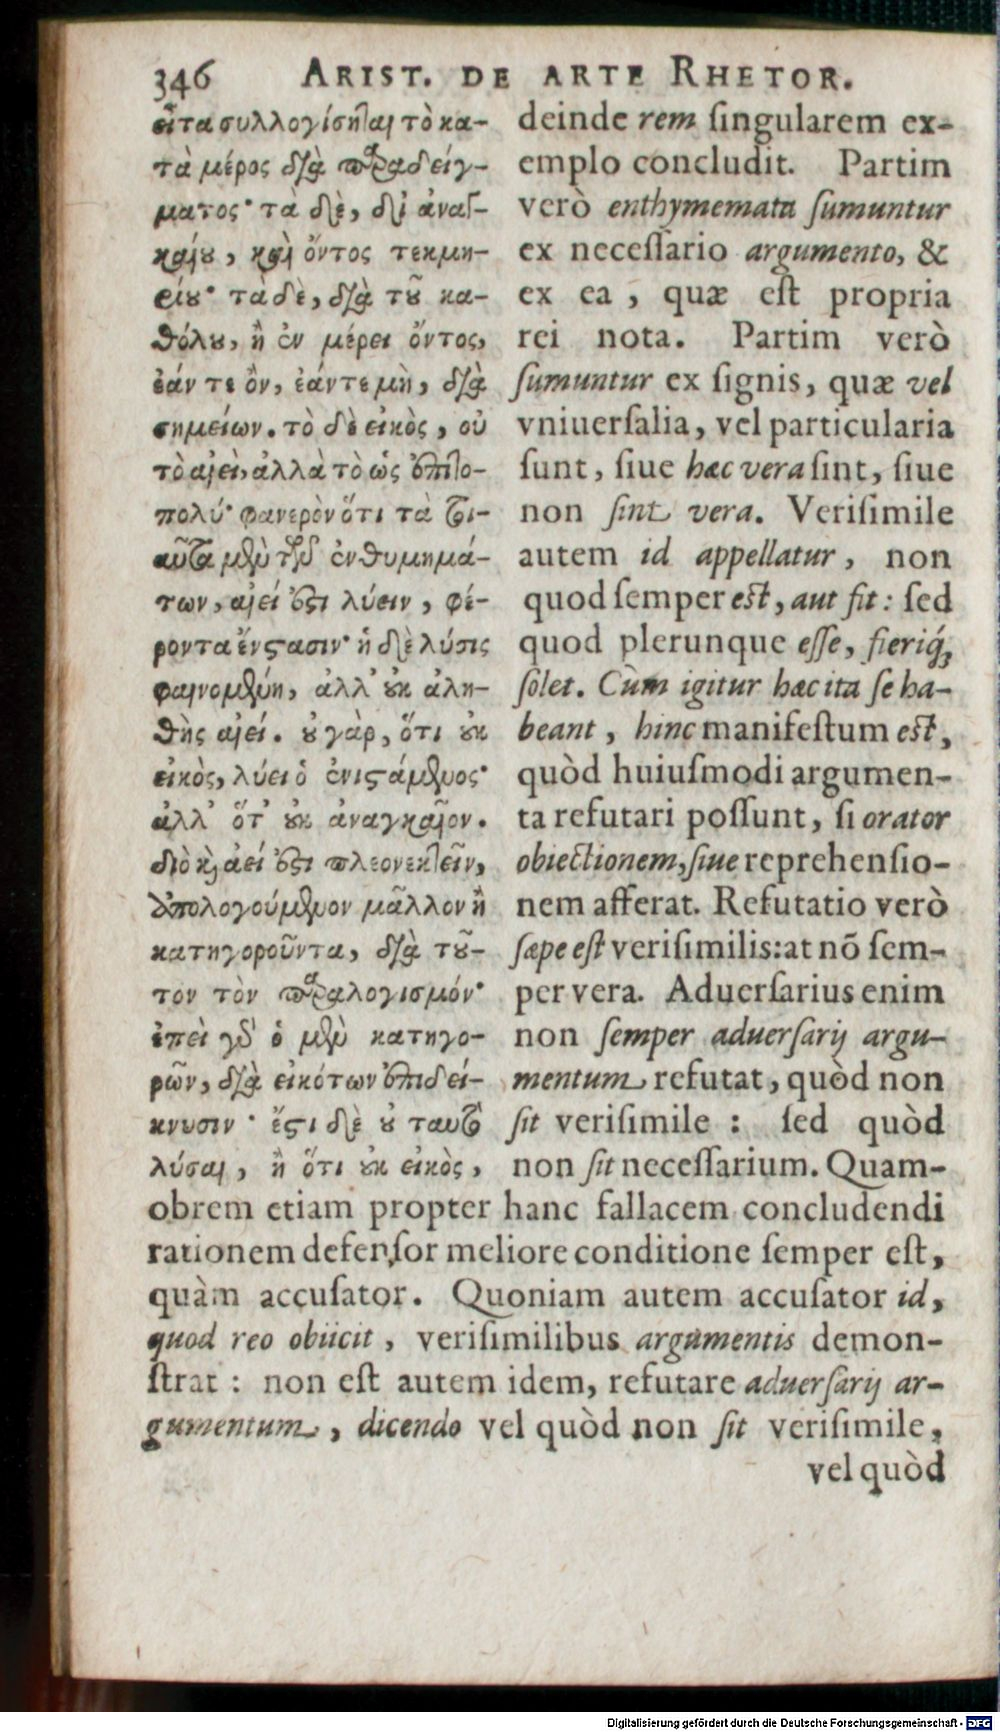 346 ARIST. DE ARTE RHETOR.
εἶτα συλλογίσηται τὸ κα-
τὰ μέρος διὰ παραδείγ-
ματος· τὰ δὲ, δι' ἀναγ-
καίου, καὶ ὄντος τεκμη-
είου· τὰ δὲ, διὰ τοῦ κα-
θόλου, ἢ ἐν μέρει ὄντος,
ἐάν τε ὂν, ἐάντε μὴ, διὰ
σημείων. τὸ δὲ εἰκὸς, οὐ
τὸ αἰεὶ, ἀλλὰ τὸ ὡς ἐπιτο-
πολύ· φανερὸν ὅτι τὰ τοι-
αῦτα μὲν τῶν ἐνθυμημά-
των, αἰεί ἐστι λύειν, φέ-
ροντα ἔνστασιν· ἡ δὲ λύσις
φαινομένη, ἀλλ' οὐκ ἀλη-
θὴς αἰεί. οὐ γὰρ, ὅτι οὐκ
εἰκὸς, λύει ὁ ἐνιστάμενος·
ἀλλ' ὅτ' οὐκ ἀναγκαῖον.
διὸ καὶ ἀεί ἐστι πλεονεκτεῖν,
ἀπολογούμενον μᾶλλον ἢ
κατηγοροῦντα, διὰ τοῦ-
τον τὸν παραλογισμόν·
ἐπεὶ γὰρ ὁ μὲν κατηγο-
ρῶν, διὰ εἰκότων ἐπιδεί-
κνυσιν· ἔστι δὲ οὐ ταυτὸ
λύσαι, ἢ ὅτι οὐκ εἰκὸς,
deinde rem ſingularem ex-
emplo concludit. Partim
verò enthymemata ſumuntur
ex neceſſario argumento, &
ex ea, quæ eſt propria
rei nota. Partim verò
ſumuntur ex ſignis, quæ vel
vniuerſalia, vel particularia
ſunt, ſiue hæc vera ſint, ſiue
non ſint vera. Veriſimile
autem id appellatur, non
quod ſemper eſt, aut fit: ſed
quod plerunque eſſe, fieriq́;
ſolet. Cùm igitur hæc ita ſe ha-
beant, hinc manifeſtum eſt,
quòd huiuſmodi argumen-
ta refutari poſſunt, ſi orator
obiectionem, ſiue reprehenſio-
nem afferat. Refutatio verò
ſæpe eſt veriſimilis: at nõ ſem-
per vera. Aduerſarius enim
non ſemper aduerſarij argu-
mentum refutat, quòd non
ſit veriſimile : ſed quòd
non ſit neceſſarium. Quam-
obrem etiam propter hanc fallacem concludendi
rationem defenſor meliore conditione ſemper eſt,
quàm accuſator. Quoniam autem accuſator id,
quod reo obiicit, veriſimilibus argumentis demon-
ſtrat : non eſt autem idem, refutare aduerſarij ar-
gumentum, dicendo vel quòd non ſit veriſimile,
vel quòd
Digitalisierung gefördert durch die Deutsche Forschungsgemeinschaft - DFG